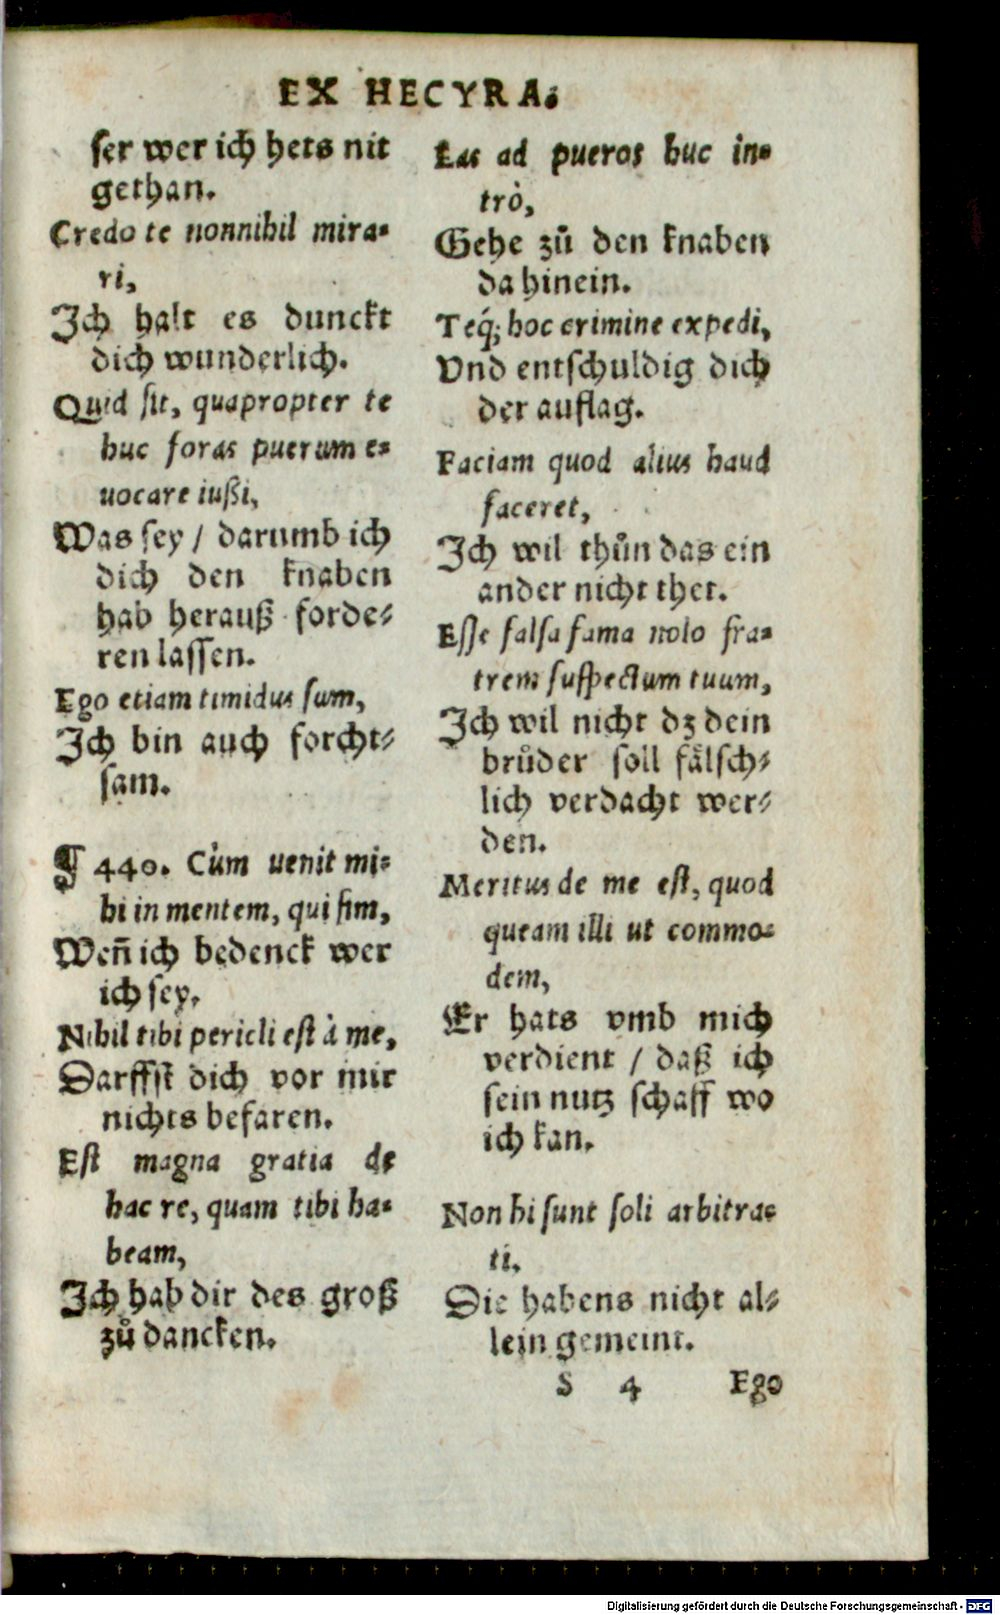 EX HECYRA.
ser wer ich hets nit
gethan.
Credo te nonnihil mira-
ri,
Ich halt es dunckt
dich wunderlich.
Quid sit, quapropter te
huc foras puerum e-
uocare iußi,
Was sey / darumb ich
dich den knaben
hab herauß forde-
ren lassen.
Ego etiam timidus sum,
Ich bin auch forcht-
sam.
¶ 440. Cùm uenit mi-
hi in mentem, qui sim,
Weñ ich bedenck wer
ich sey,
Nihil tibi pericli est à me,
Darffst dich vor mir
nichts befaren.
Est magna gratia de
hac re, quam tibi ha-
beam,
Ich hab dir des groß
zů dancken.
Eas ad pueros huc in-
trò,
Gehe zů den knaben
da hinein.
Teq́; hoc crimine expedi,
Vnd entschuldig dich
der auflag.
Faciam quod alius haud
faceret,
Ich wil thůn das ein
ander nicht thet.
Esse falsa fama nolo fra-
trem suspectum tuum,
Ich wil nicht dz dein
brůder soll fälsch-
lich verdacht wer-
den.
Meritus de me est, quod
queam illi ut commo-
dem,
Er hats vmb mich
verdient / daß ich
sein nutz schaff wo
ich kan.
Non hi sunt soli arbitra-
ti,
Die habens nicht al-
lein gemeint.
S 4 Ego
Digitalisierung gefördert durch die Deutsche Forschungsgemeinschaft - DFG